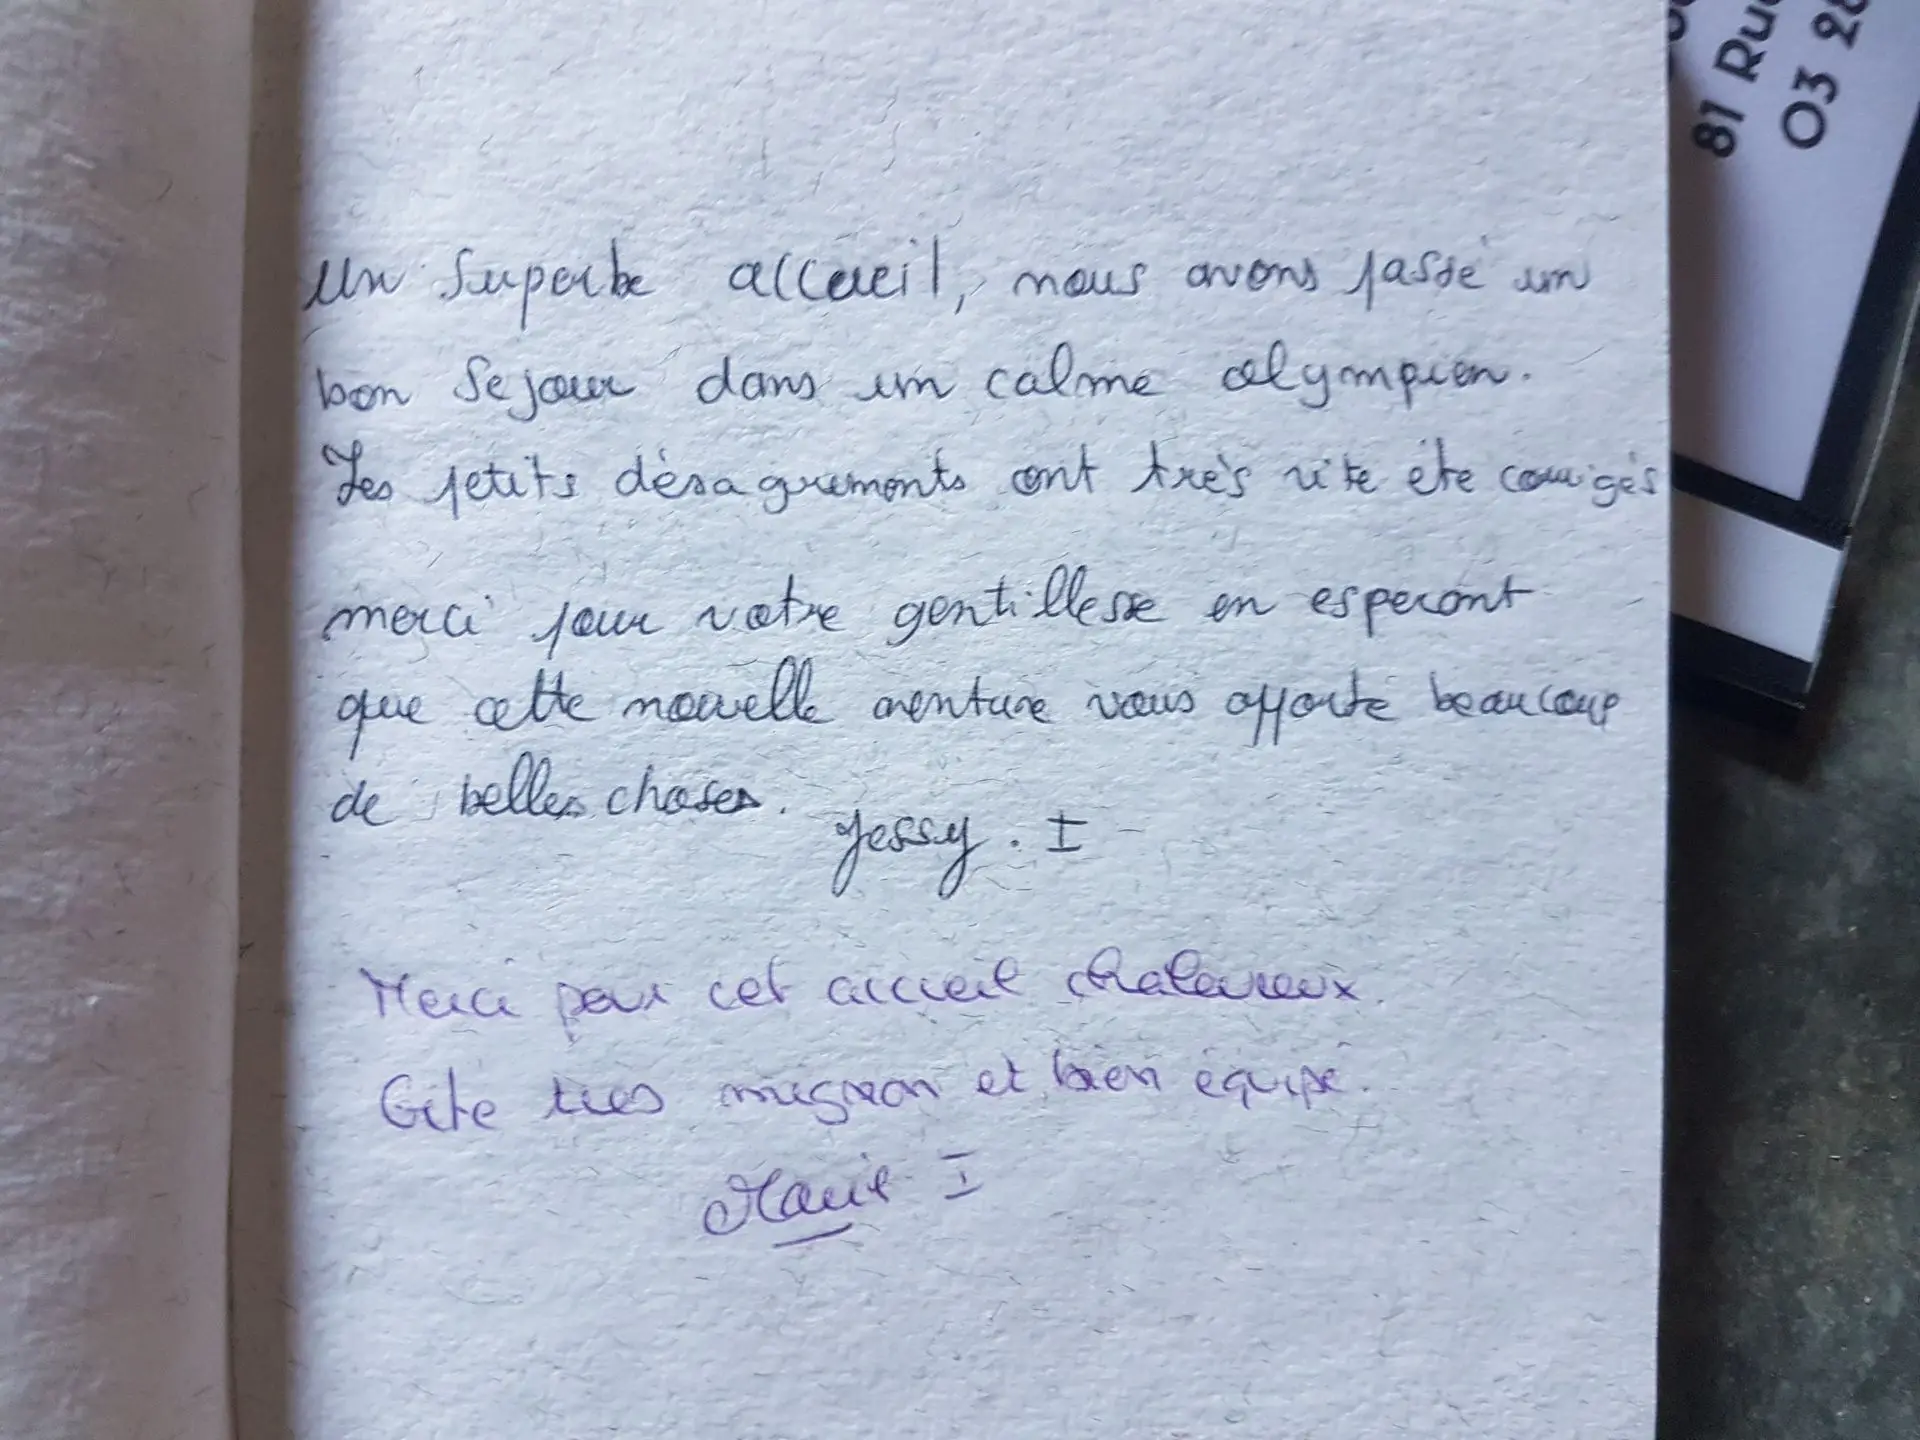 Un Superbe accueil, nous avons passé un
bon Sejour dans un calme olympien.
Les petits désagrements ont très vite ete corrigés
merci pour votre gentillesse en esperant
que cette nouvelle aventure vous apporte beaucoup
de belles choses.
Jessy. I
Merci pour cet accueil chaleureux.
Gite tres mignon et bien équipé.
Marie I
81 Rue
03 28